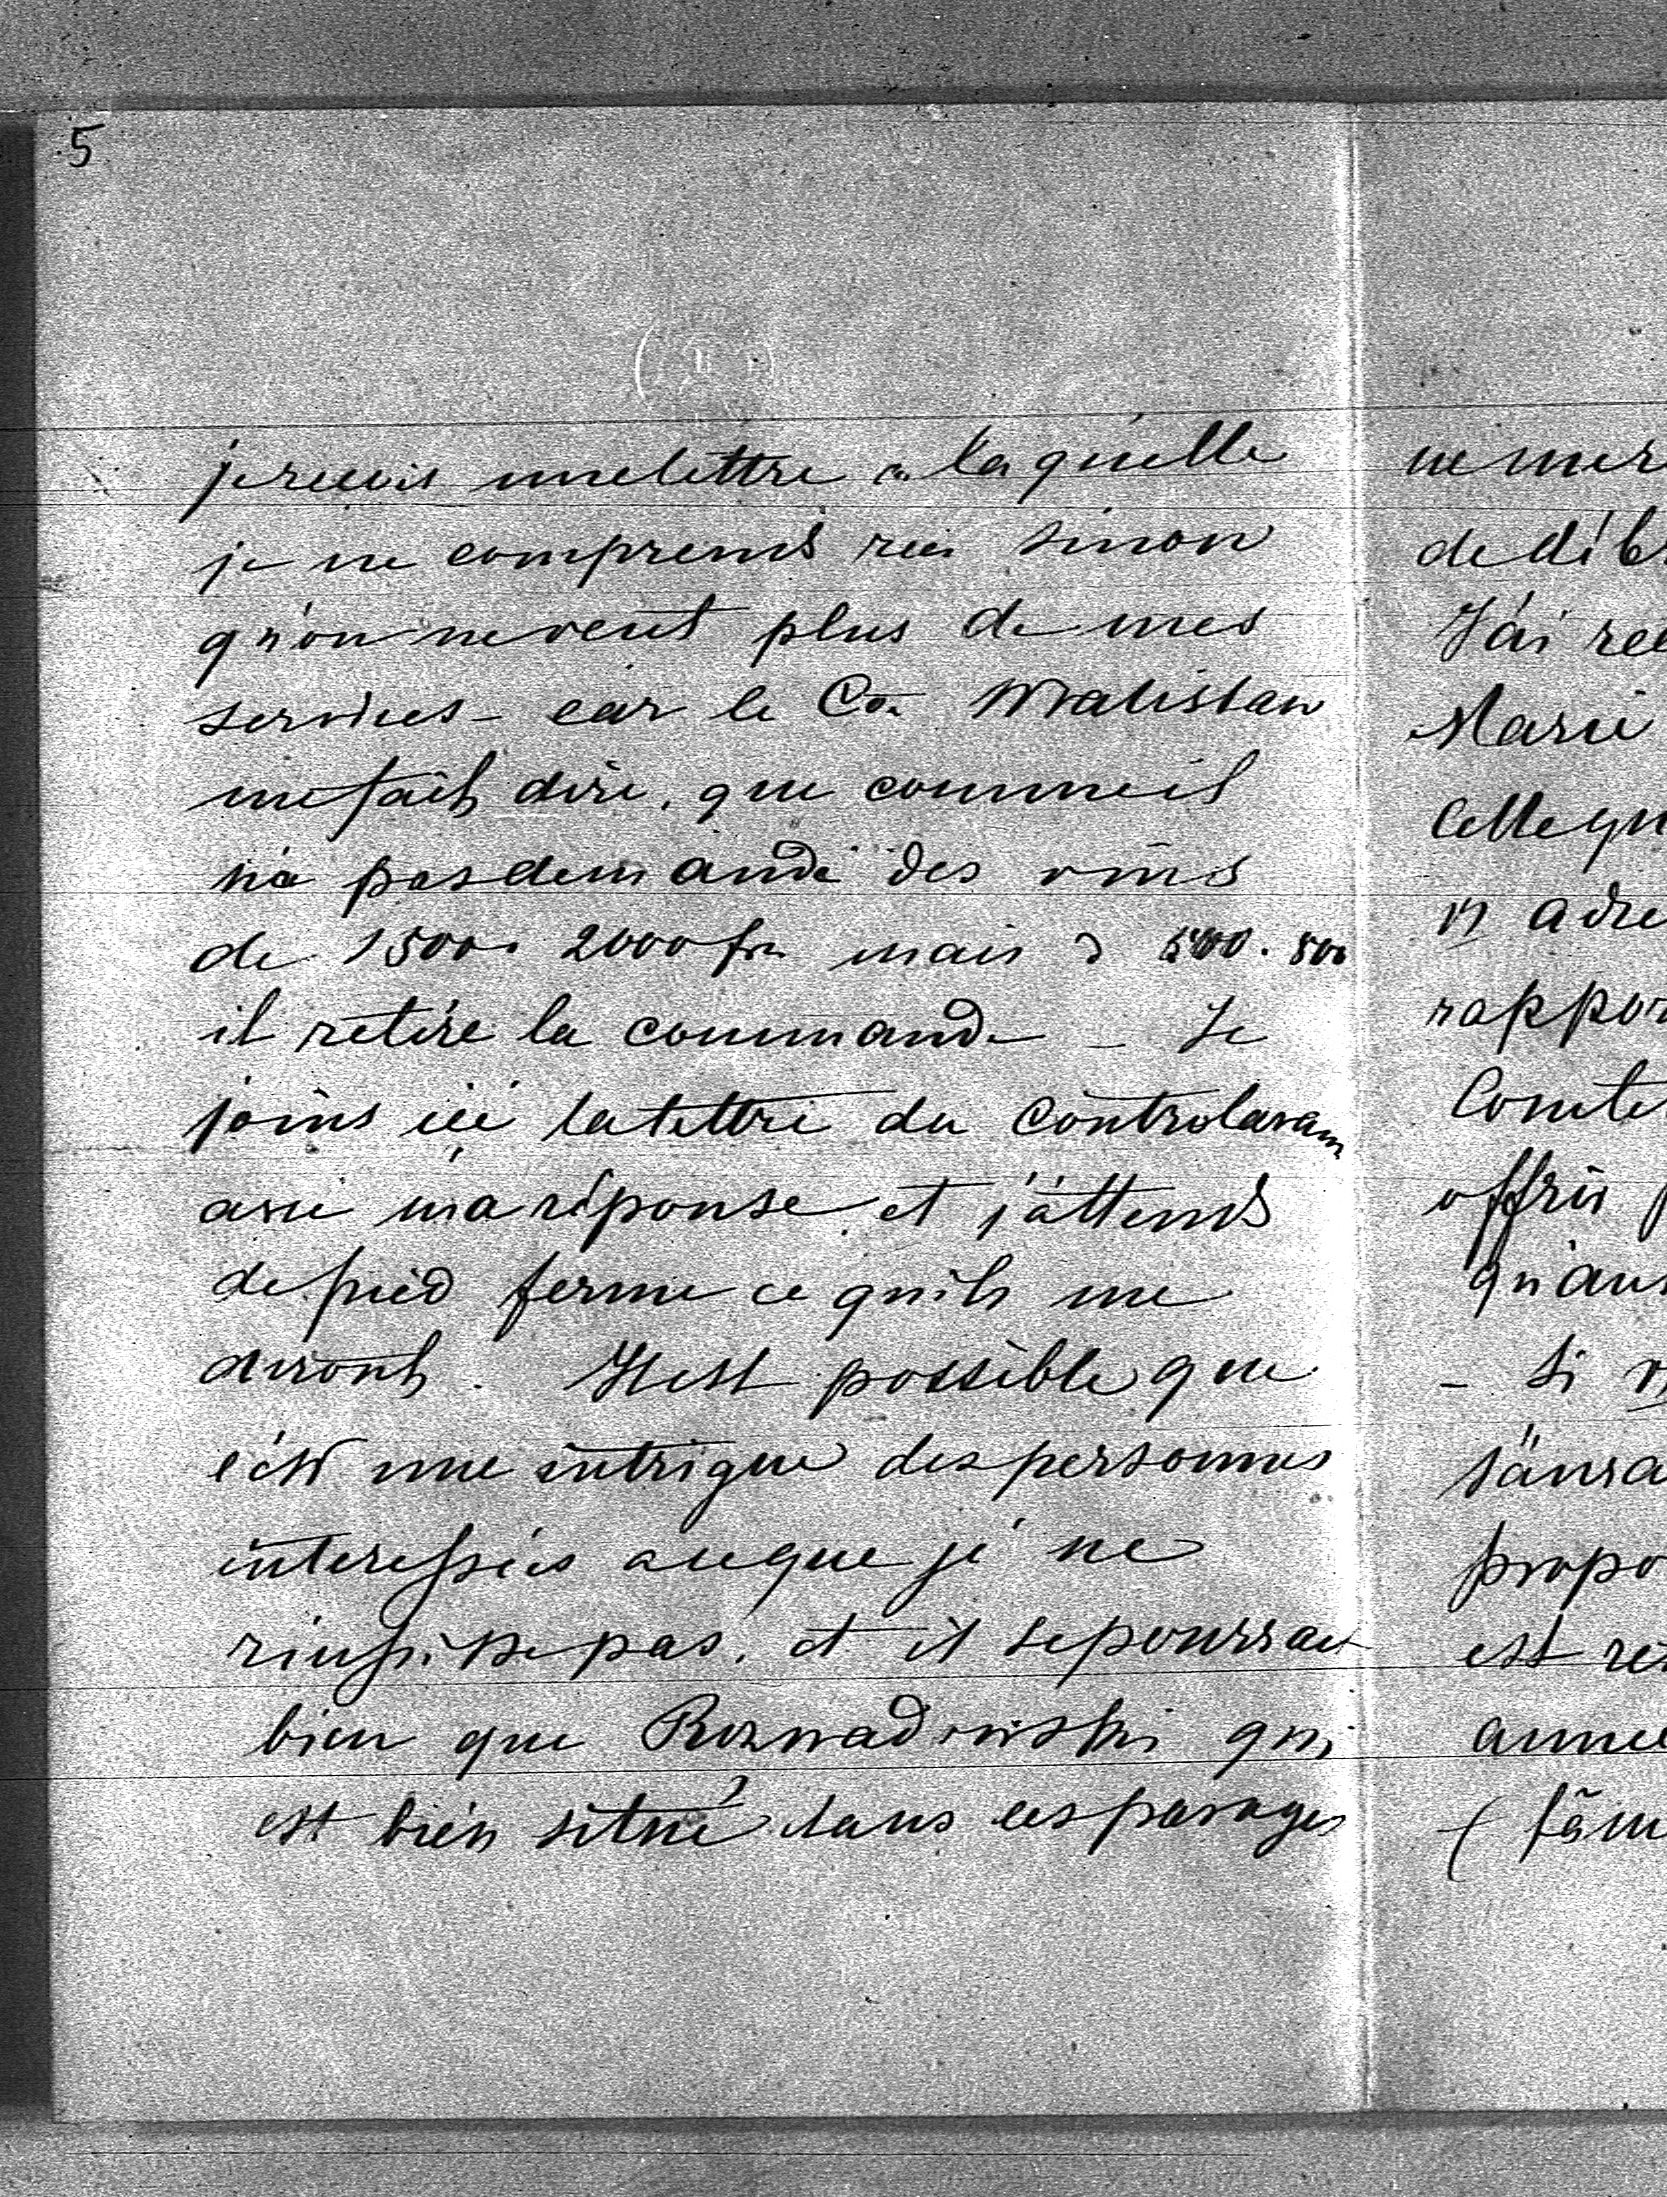 5
je reçois une lettre a laquelle
je ne comprends rien sinon
qu'on ne veut plus de mes
services - car le Cte Wratislaw
me fait dire, que comme il
n'a pas demandé des vins
de 1500. 2000 fr mais d 500. 800
il retire la commande - Je
joins ici la lettre du
avec ma réponse et j'attends
de pied ferme ce qu'ils me
diront. Il est possible que
c'est une intrigue des personnes
interessées a ce que je ne
réussisse pas, et il se pourrait
bien que Rozwadowski qui
est bien situé dans ces parages
ne mer
de déb
J'ai reç
Marie
Celle qu
adre
rappor
Comte
offris p
qu'au
- Si
s'aura
propo
est re
année
(